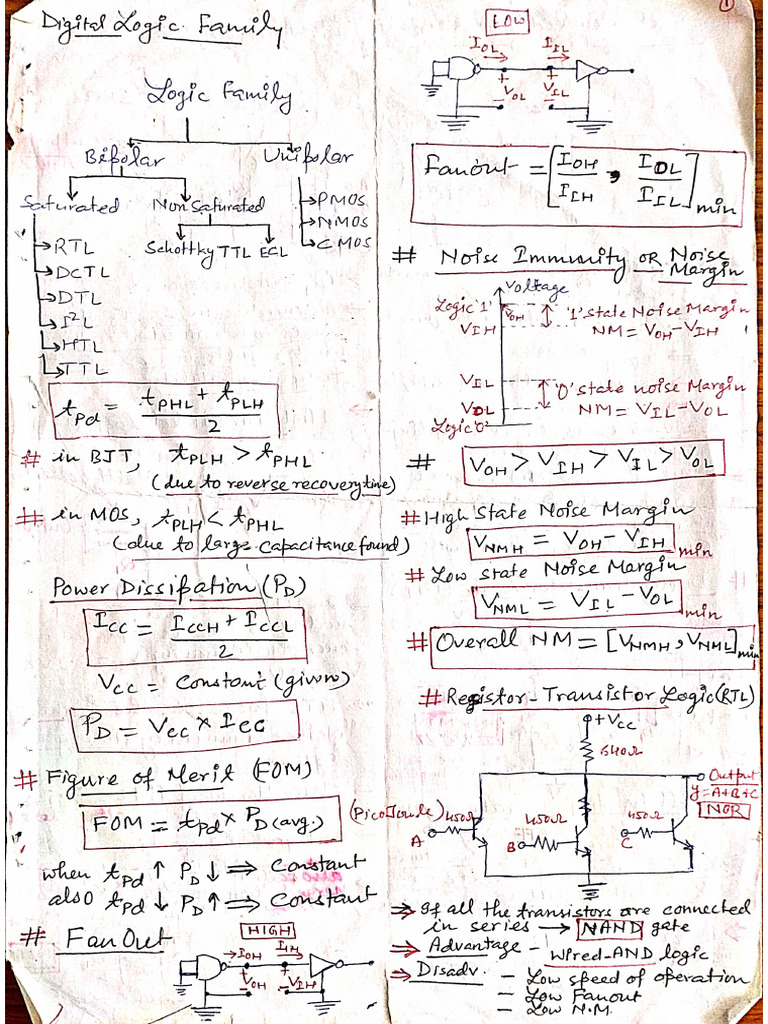 Digital Logic Family
Logic Family
Bipolar
Unipolar
Saturated
Non Saturated
→PMOS
→NMOS
→CMOS
→RTL
→DCTL
→DTL
→I²L
→HTL
→TTL
Schottky TTL ECL
tpd = (tPHL + tPLH) / 2
# in BJT, tPLH > tPHL
(due to reverse recovery time)
# in MOS, tPLH < tPHL
(due to large capacitance found)
Power Dissipation (PD)
ICC = (ICCH + ICCL) / 2
VCC = Constant (given)
PD = VCC × ICC
# Figure of Merit (FOM)
FOM = tpd × PD(avg.) (Pico Joule)
when tpd ↑ PD ↓ ⇒ Constant
also tpd ↓ PD ↑ ⇒ Constant
# Fan Out
HIGH
IOH IIH
+ +
VOH VIH
- -
①
LOW
IOL IIL
+ +
VOL VIL
- -
Fanout = [IOH/IIH , IOL/IIL]min
# Noise Immunity OR Noise
Margin
Voltage
Logic '1'
VOH
'1' state Noise Margin
VIH
NM = VOH - VIH
VIL
'0' state noise Margin
VOL
NM = VIL - VOL
Logic '0'
# VOH > VIH > VIL > VOL
# High State Noise Margin
VNMH = VOH - VIH min
# Low state Noise Margin
VNML = VIL - VOL min
# Overall NM = [VNMH, VNML]min
# Registor-Transistor Logic (RTL)
+VCC
640Ω
Output
y = A+B+C
NOR
450Ω
A
450Ω
B
450Ω
C
⇒ If all the transistors are connected
in series → NAND gate
⇒ Advantage - Wired-AND logic
⇒ Disadv. - Low speed of operation
- Low Fanout
- Low N.M.